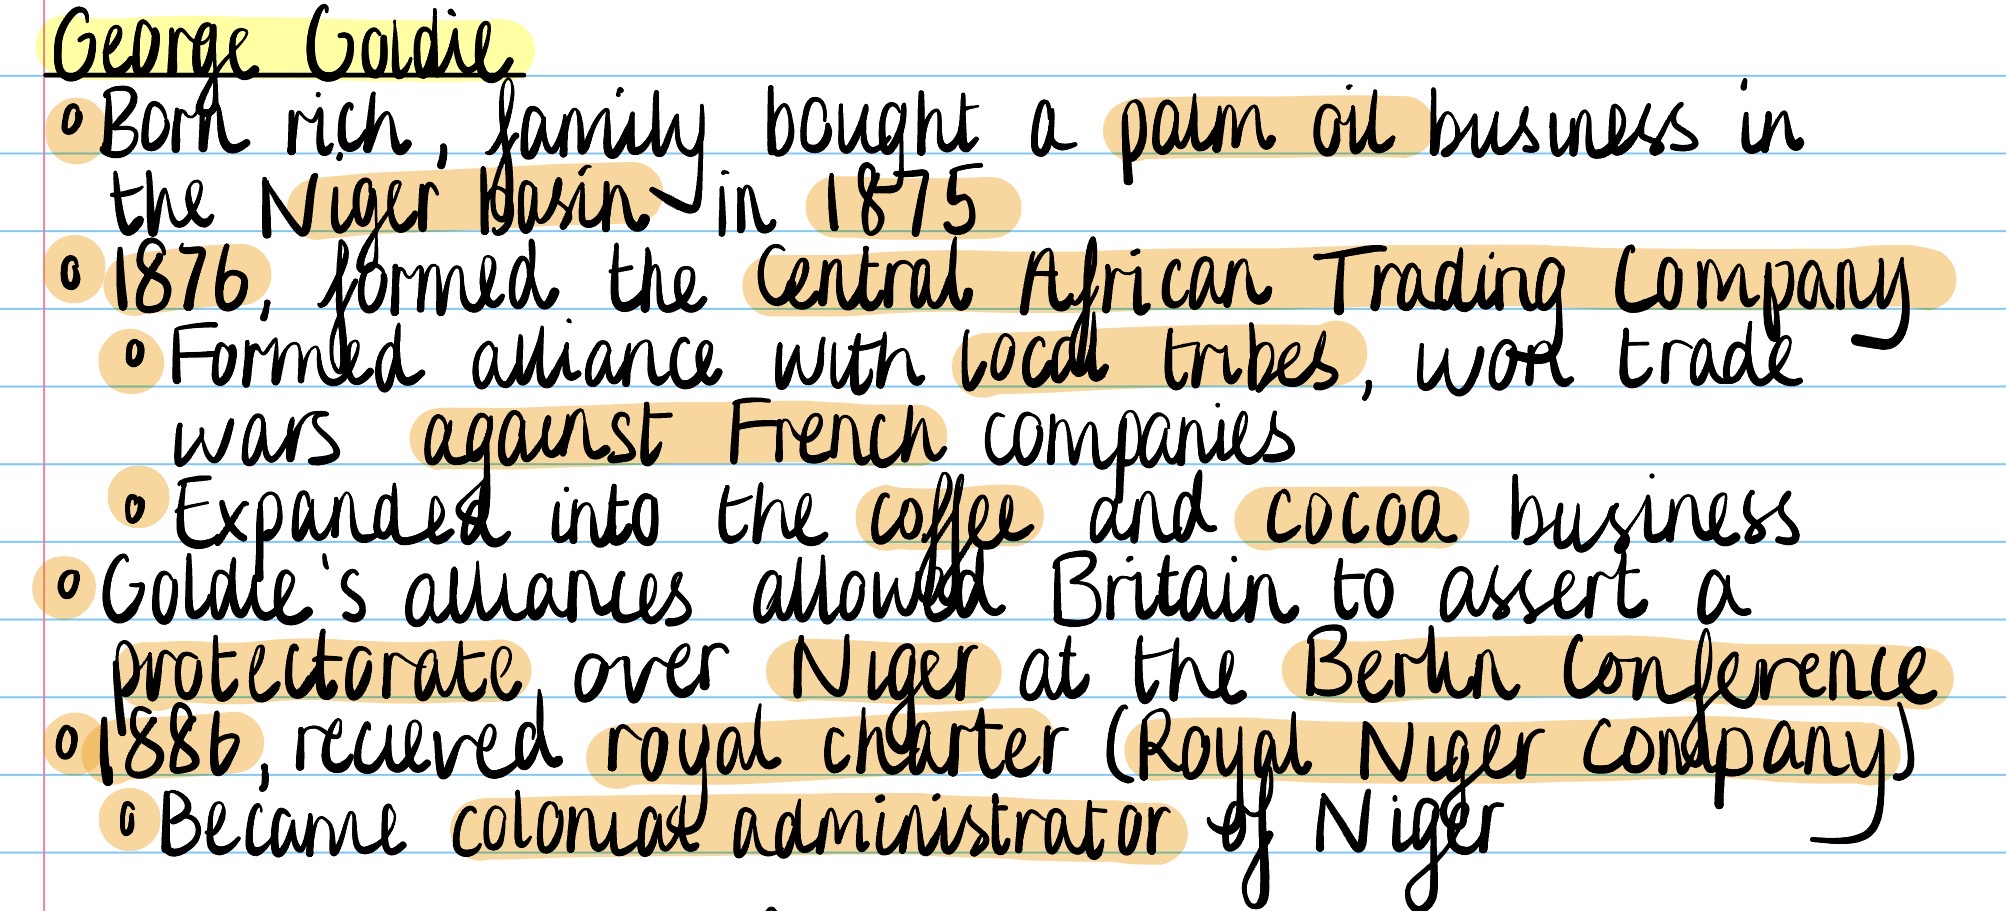 George Goldie
Born rich, family bought a palm oil business in
the Niger Basin in 1875
1876, formed the Central African Trading Company
Formed alliance with local tribes, won trade
wars against French companies
Expanded into the coffee and cocoa business
Goldie's alliances allowed Britain to assert a
protectorate over Niger at the Berlin Conference
1886, recieved royal charter (Royal Niger Company)
Became colonial administrator of Niger